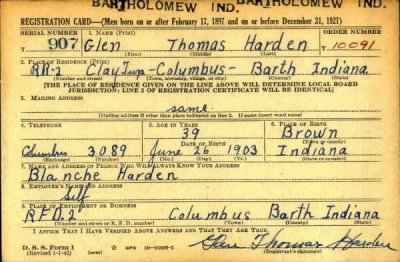 BARTHOLOMEW IND. BARTHOLOMEW IND.
REGISTRATION CARD—(Men born on or after February 17, 1897 and on or before December 31, 1921)
SERIAL NUMBER 1. NAME (Print) ORDER NUMBER
907 Glen Thomas Harden 10091
(First) (Middle) (Last)
2. PLACE OF RESIDENCE (Print)
RR-2 Clay Twp - Columbus - Barth Indiana
(Number and street) (Town, township, village, or city) (County) (State)
[THE PLACE OF RESIDENCE GIVEN ON THE LINE ABOVE WILL DETERMINE LOCAL BOARD
JURISDICTION; LINE 2 OF REGISTRATION CERTIFICATE WILL BE IDENTICAL]
3. MAILING ADDRESS
same
[Mailing address if other than place indicated on line 2. If same insert word same]
4. TELEPHONE 5. AGE IN YEARS 6. PLACE OF BIRTH
39 Brown
DATE OF BIRTH (Town or county)
Columbus 3089 June 26 1903 Indiana
(Exchange) (Number) (Mo.) (Day) (Yr.) (State or country)
7. NAME AND ADDRESS OF PERSON WHO WILL ALWAYS KNOW YOUR ADDRESS
Blanche Harden
8. EMPLOYER'S NAME AND ADDRESS
Self
9. PLACE OF EMPLOYMENT OR BUSINESS
R.F.D. 2 Columbus Barth Indiana
(Number and street or R. F. D. number) (Town) (County) (State)
I AFFIRM THAT I HAVE VERIFIED ABOVE ANSWERS AND THAT THEY ARE TRUE.
D. S. S. Form 1
(Revised 1-1-42) Glen Thomas Harden